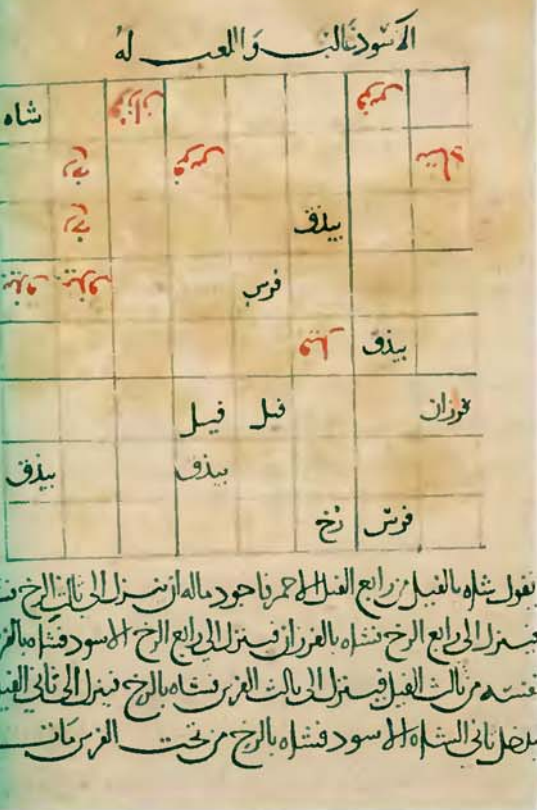 الاسود غالب واللعب له
فرس فرزان شاه
شاه فرس رخ
بيذق رخ
فرس بيذق بيذق
بيذق فيل
فرزان فيل فيل
بيذق بيذق
فرس رخ
تقول شاه بالفيل من رابع الفيل الاحمر فاجود ماله ان ينزل الى ثالث الرخ
فينزل الى رابع الرخ فشاه بالفرزان فينزل الى رابع الرخ الاسود فشاه بالفرس
من ثالث الفيل فينزل الى ثالث الفرس فشاه بالرخ فينزل الى ثاني الفيل
ثاني الشاه الاسود فشاه بالرخ من تحت الفرس مات